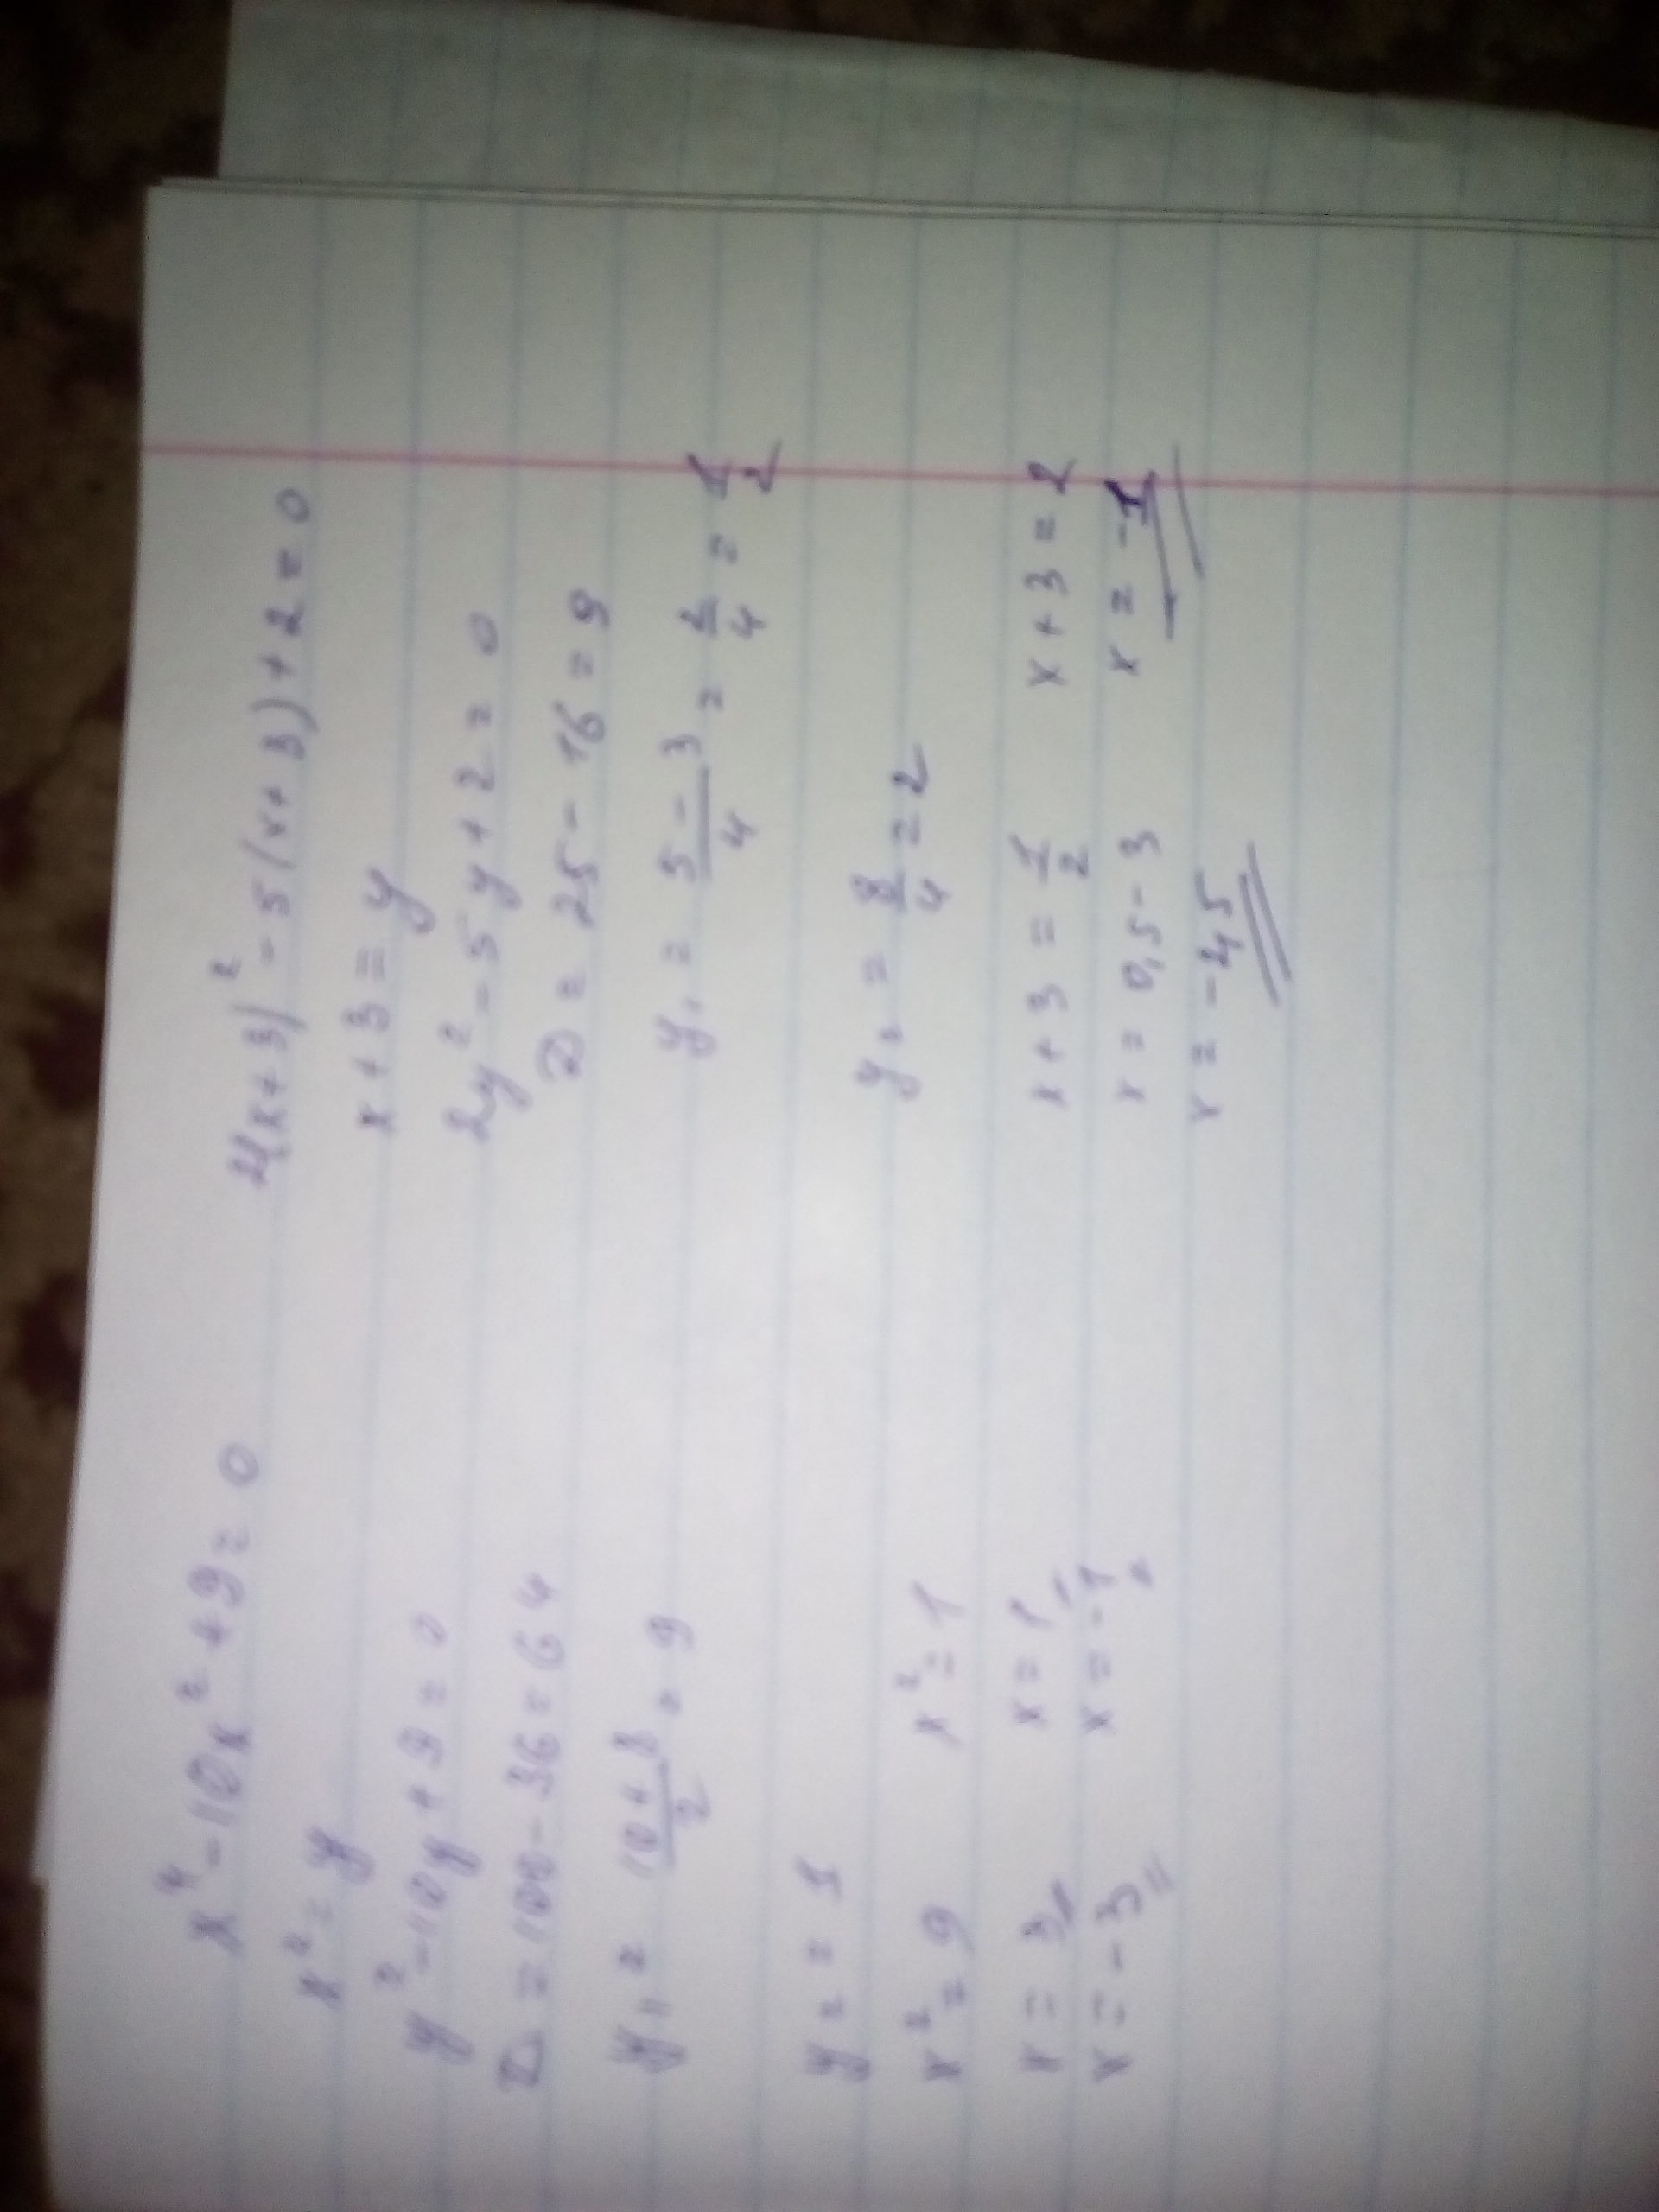 x⁴ - 10x² + 9 = 0
x² = y
y² - 10y + 9 = 0
D = 100 - 36 = 64
y₁ = (10 + 8)/2 = 9
y₂ = 1
x² = 9    x² = 1
x = 3    x = 1
x = -3    x = -1
2(x + 3)² - 5(x + 3) + 2 = 0
x + 3 = y
2y² - 5y + 2 = 0
D = 25 - 16 = 9
y₁ = (5 - 3)/4 = 2/4 = 1/2
y₂ = 8/4 = 2
x + 3 = 1/2    x + 3 = 2
x = 0,5 - 3    x = -1
x = -2,5